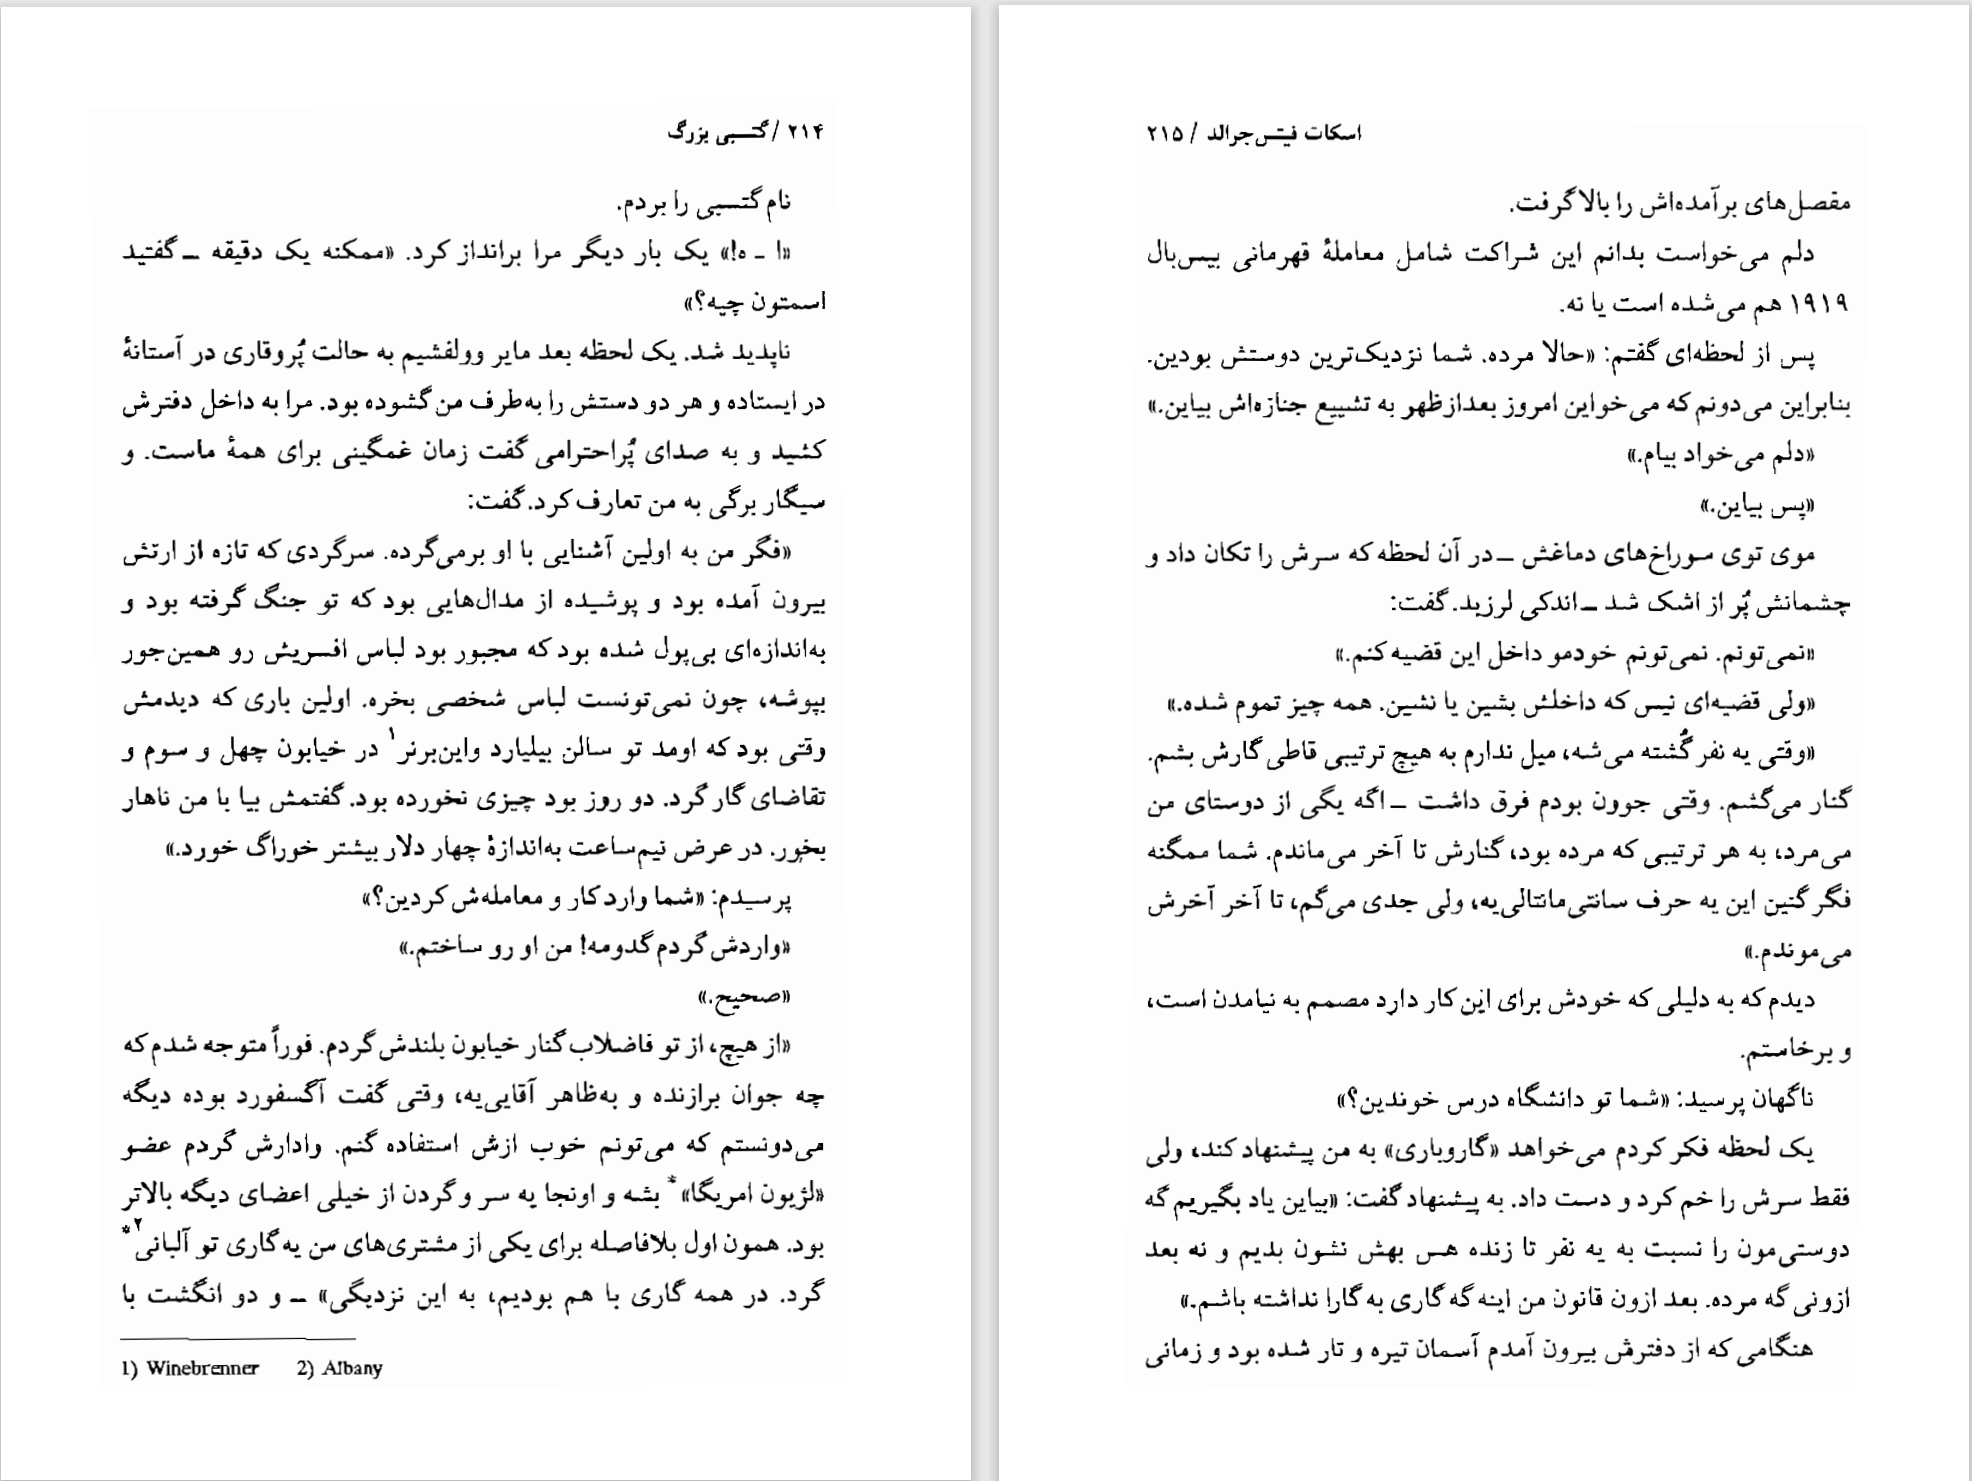 ۲۱۴ / گتسبی بزرگ
نام گتسبی را بردم.
«ا ـ ه!» یک بار دیگر مرا برانداز کرد. «ممکنه یک دقیقه ــ گفتید
اسمتون چیه؟»
ناپدید شد. یک لحظه بعد مایر وولفشیم به حالت پُروقاری در آستانهٔ
در ایستاده و هر دو دستش را به‌طرف من گشوده بود. مرا به داخل دفترش
کشید و به صدای پُراحترامی گفت زمان غمگینی برای همهٔ ماست. و
سیگار برگی به من تعارف کرد. گفت:
«فگر من به اولین آشنایی با او برمی‌گرده. سرگردی که تازه از ارتش
بیرون آمده بود و پوشیده از مدال‌هایی بود که تو جنگ گرفته بود و
به‌اندازه‌ای بی‌پول شده بود که مجبور بود لباس افسریش رو همین‌جور
بپوشه، چون نمی‌تونست لباس شخصی بخره. اولین باری که دیدمش
وقتی بود که اومد تو سالن بیلیارد واین‌برنر۱ در خیابون چهل و سوم و
تقاضای گار گرد. دو روز بود چیزی نخورده بود. گفتمش بیا با من ناهار
بخور. در عرض نیم‌ساعت به‌اندازهٔ چهار دلار بیشتر خوراگ خورد.»
پرسیدم: «شما وارد کار و معامله‌ش کردین؟»
«واردش گردم گدومه! من او رو ساختم.»
«صحیح.»
«از هیچ، از تو فاضلاب گنار خیابون بلندش گردم. فوراً متوجه شدم که
چه جوان برازنده و به‌ظاهر آقایی‌یه، وقتی گفت آگسفورد بوده دیگه
می‌دونستم که می‌تونم خوب ازش استفاده گنم. وادارش گردم عضو
«لژیون امریگا»* بشه و اونجا یه سر و گردن از خیلی اعضای دیگه بالاتر
بود. همون اول بلافاصله برای یکی از مشتری‌های من یه گاری تو آلبانی۲*
گرد. در همه گاری با هم بودیم، به این نزدیگی» ــ و دو انگشت با
1) Winebrenner 2) Albany
اسکات فیتس‌جرالد / ۲۱۵
مفصل‌های برآمده‌اش را بالا گرفت.
دلم می‌خواست بدانم این شراکت شامل معاملهٔ قهرمانی بیس‌بال
۱۹۱۹ هم می‌شده است یا نه.
پس از لحظه‌ای گفتم: «حالا مرده. شما نزدیک‌ترین دوستش بودین.
بنابراین می‌دونم که می‌خواین امروز بعدازظهر به تشییع جنازه‌اش بیاین.»
«دلم می‌خواد بیام.»
«پس بیاین.»
موی توی سوراخ‌های دماغش ــ در آن لحظه که سرش را تکان داد و
چشمانش پُر از اشک شد ــ اندکی لرزید. گفت:
«نمی‌تونم. نمی‌تونم خودمو داخل این قضیه کنم.»
«ولی قضیه‌ای نیس که داخلش بشین یا نشین. همه چیز تموم شده.»
«وقتی یه نفر گُشته می‌شه، میل ندارم به هیچ ترتیبی قاطی گارش بشم.
گنار می‌گشم. وقتی جوون بودم فرق داشت ــ اگه یگی از دوستای من
می‌مرد، به هر ترتیبی که مرده بود، گنارش تا آخر می‌ماندم. شما ممگنه
فگر گنین این یه حرف سانتی‌مانتالی‌یه، ولی جدی می‌گم، تا آخر آخرش
می‌موندم.»
دیدم که به دلیلی که خودش برای این کار دارد مصمم به نیامدن است،
و برخاستم.
ناگهان پرسید: «شما تو دانشگاه درس خوندین؟»
یک لحظه فکر کردم می‌خواهد «گاروباری» به من پیشنهاد کند، ولی
فقط سرش را خم کرد و دست داد. به پیشنهاد گفت: «بیاین یاد بگیریم گه
دوستی‌مون را نسبت به یه نفر تا زنده هس بهش نشون بدیم و نه بعد
ازونی گه مرده. بعد ازون قانون من اینه گه گاری به گارا نداشته باشم.»
هنگامی که از دفترش بیرون آمدم آسمان تیره و تار شده بود و زمانی